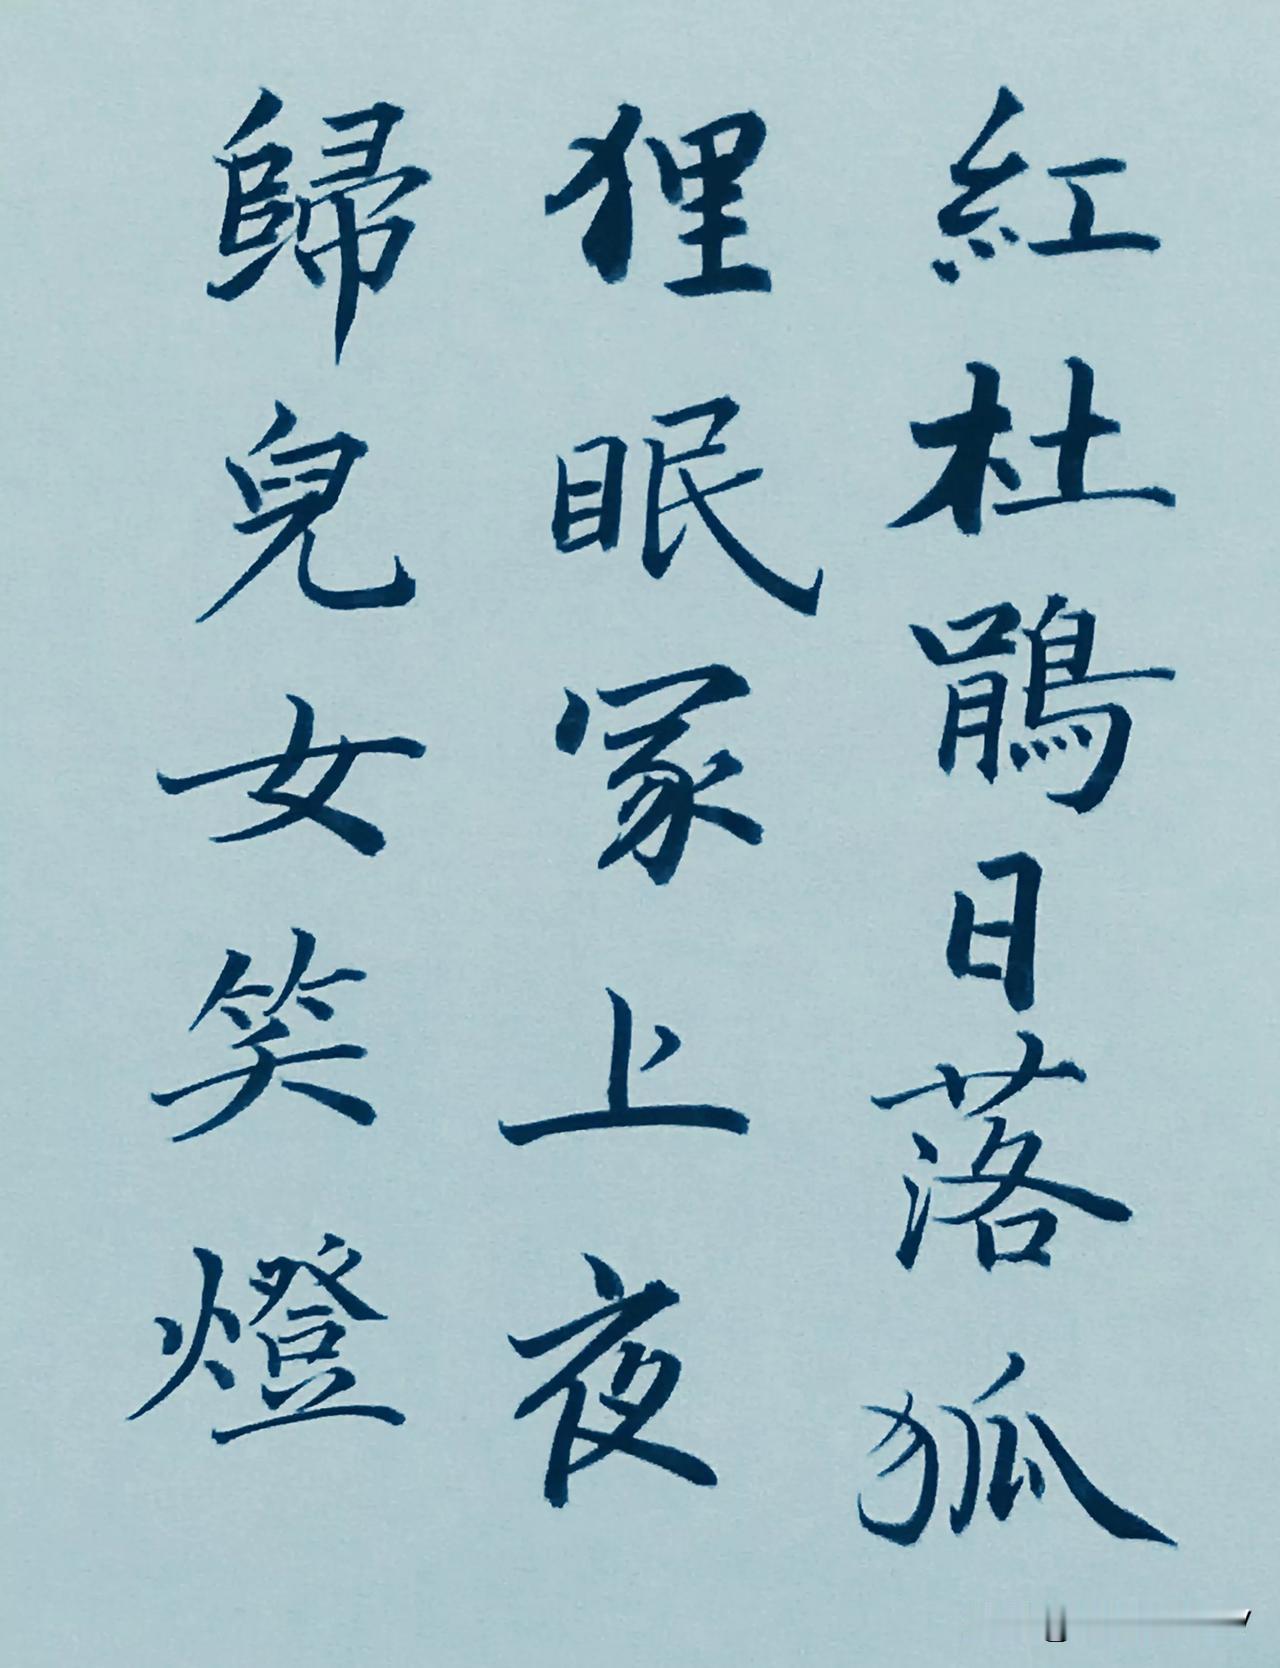 紅杜鵑日落狐
狸眠冢上夜
歸兒女笑燈